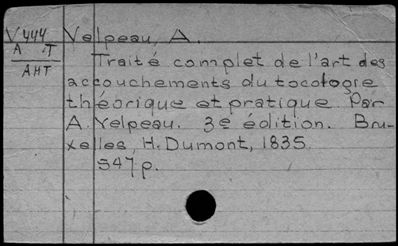 V444 Velpeau, A.
A .T Traité complet de l'art des
AHT accouchements du tocologie
théorique et pratique. Par
A. Velpeau. 3e édition. Bru-
xelles, H. Dumont, 1835.
547p.